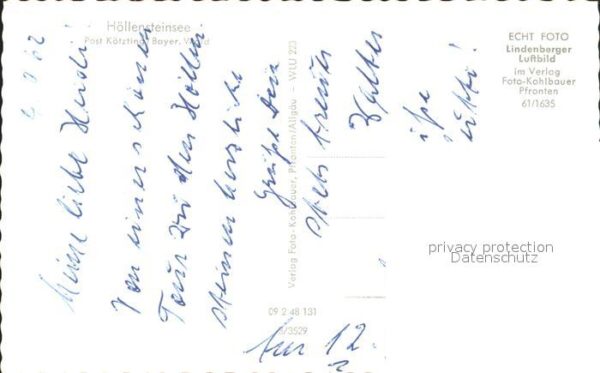 Höllensteinsee
Post Kötzting, Bayer. Wald
ECHT FOTO
Lindenberger
Luftbild
im Verlag
Foto-Kohlbauer
Pfronten
61/1635
Meine liebe Heidi!
Von einer schönen
Tour zu den Höllen-
steinen herzliche
Grüße Dein
stets treuer
Walter
Verlag Foto-Kohlbauer, Pfronten/Allgäu WLU 223
09 2 48 131
/3529
Am 12.
privacy protection
Datenschutz